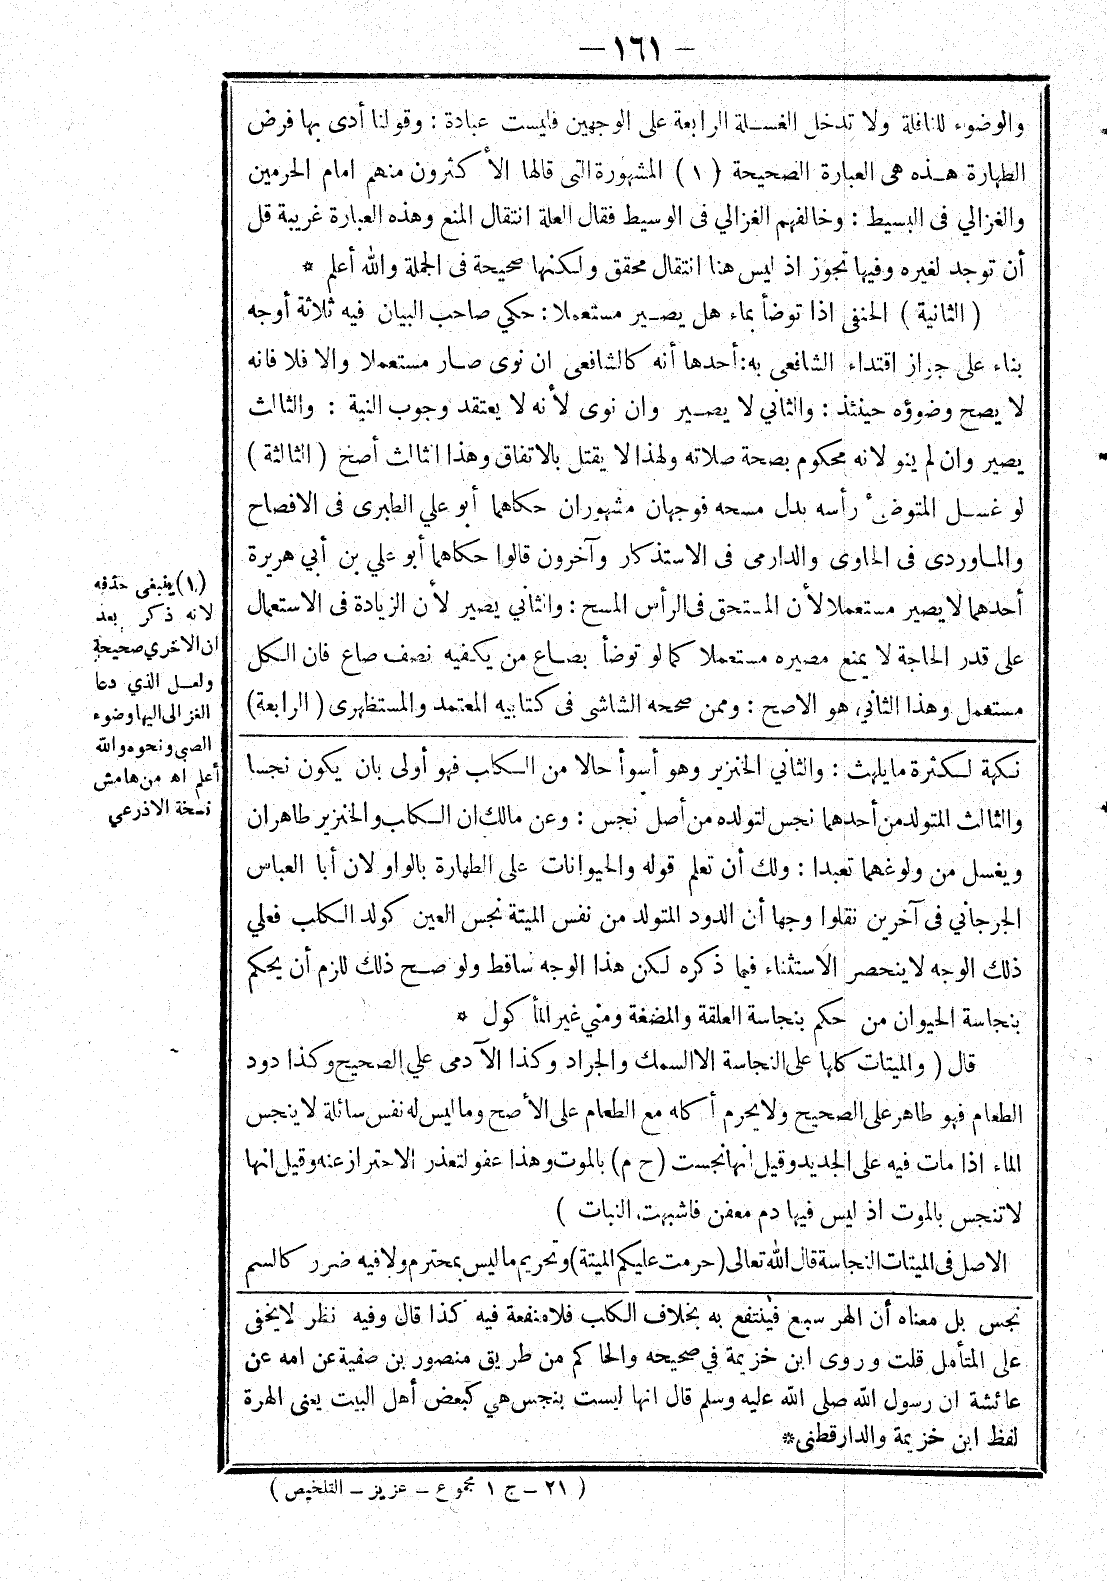 — ١٦١ —
والوضوء للنافلة ولا تدخل الغسلة الرابعة على الوجهين فليست عبادة : وقولنا أدى بها فرض
الطهارة هذه هى العبارة الصحيحة (١) المشهورة التى قالها الأكثرون منهم امام الحرمين
والغزالي فى البسيط : وخالفهم الغزالي فى الوسيط فقال العلة انتقال المنع وهذه العبارة غريبة قل
أن توجد لغيره وفيها تجوز اذ ليس هنا انتقال محقق ولكنها صحيحة فى الجملة والله أعلم *
( الثانية ) الحنفى اذا توضأ بماء هل يصير مستعملا : حكي صاحب البيان فيه ثلاثة أوجه
بناء على جواز اقتداء الشافعى به: أحدها أنه كالشافعى ان نوى صار مستعملا والا فلا فانه
لا يصح وضوؤه حينئذ : والثاني لا يصير وان نوى لأنه لا يعتقد وجوب النية : والثالث
يصير وان لم ينو لانه محكوم بصحة صلاته ولهذا لا يقتل بالاتفاق وهذا الثالث أصح ( الثالثة )
لو غسل المتوضئ رأسه بدل مسحه فوجهان مشهوران حكاهما أبو علي الطبرى فى الافصاح
والماوردى فى الحاوى والدارمى فى الاستذكار وآخرون قالوا حكاهما أبو علي بن أبي هريرة
أحدهما لا يصير مستعملا لأن المستحق فى الرأس المسح : والثاني يصير لأن الزيادة فى الاستعمال
على قدر الحاجة لا يمنع مصيره مستعملا كما لو توضأ بصاع من يكفيه نصف صاع فان الكل
مستعمل وهذا الثاني هو الاصح : وممن صححه الشاشى فى كتابيه المعتمد والمستظهرى ( الرابعة )
(١) ينبغى حذفه
لانه ذكر بعد
ان الاخري صحيحة
ولعل الذي دعا
الغزالى اليها وضوء
الصبى ونحوه والله
أعلم اه من هامش
نسخة الاذرعي
نكهة لكثرة ما يلهث : والثاني الخنزير وهو أسوأ حالا من الكلب فهو أولى بان يكون نجسا
والثالث المتولد من أحدهما نجس لتولده من أصل نجس : وعن مالك ان الكلب والخنزير طاهران
ويغسل من ولوغهما تعبدا : ولك أن تعلم قوله والحيوانات على الطهارة بالواو لان أبا العباس
الجرجاني فى آخرين نقلوا وجها أن الدود المتولد من نفس الميتة نجس العين كولد الكلب فعلي
ذلك الوجه لا ينحصر الاستثناء فيما ذكره لكن هذا الوجه ساقط ولو صح ذلك للزم أن يحكم
بنجاسة الحيوان من حكم بنجاسة العلقة والمضغة ومني غير المأكول *
قال ( والميتات كلها على النجاسة الا السمك والجراد وكذا الآدمى علي الصحيح وكذا دود
الطعام فهو طاهر على الصحيح ولا يحرم أكله مع الطعام على الأصح وما ليس له نفس سائلة لا ينجس
الماء اذا مات فيه على الجديد وقيل انها نجست (ح م) بالموت وهذا عفو لتعذر الاحتراز عنه وقيل انها
لا تنجس بالموت اذ ليس فيها دم معفن فاشبهت النبات )
الاصل فى الميتات النجاسة قال الله تعالى (حرمت عليكم الميتة) وتحريم ما ليس بمحترم ولا فيه ضرر كالسم
نجس بل معناه أن الهر سبع فينتفع به بخلاف الكلب فلا منفعة فيه كذا قال وفيه نظر لا يخفى
على المتأمل قلت وروى ابن خزيمة في صحيحه والحاكم من طريق منصور بن صفية عن امه عن
عائشة ان رسول الله صلى الله عليه وسلم قال انها ليست بنجس هي كبعض أهل البيت يعنى الهرة
لفظ ابن خزيمة والدارقطنى*
( ٢١ - ج ١ مجموع - عزيز - التلخيص )